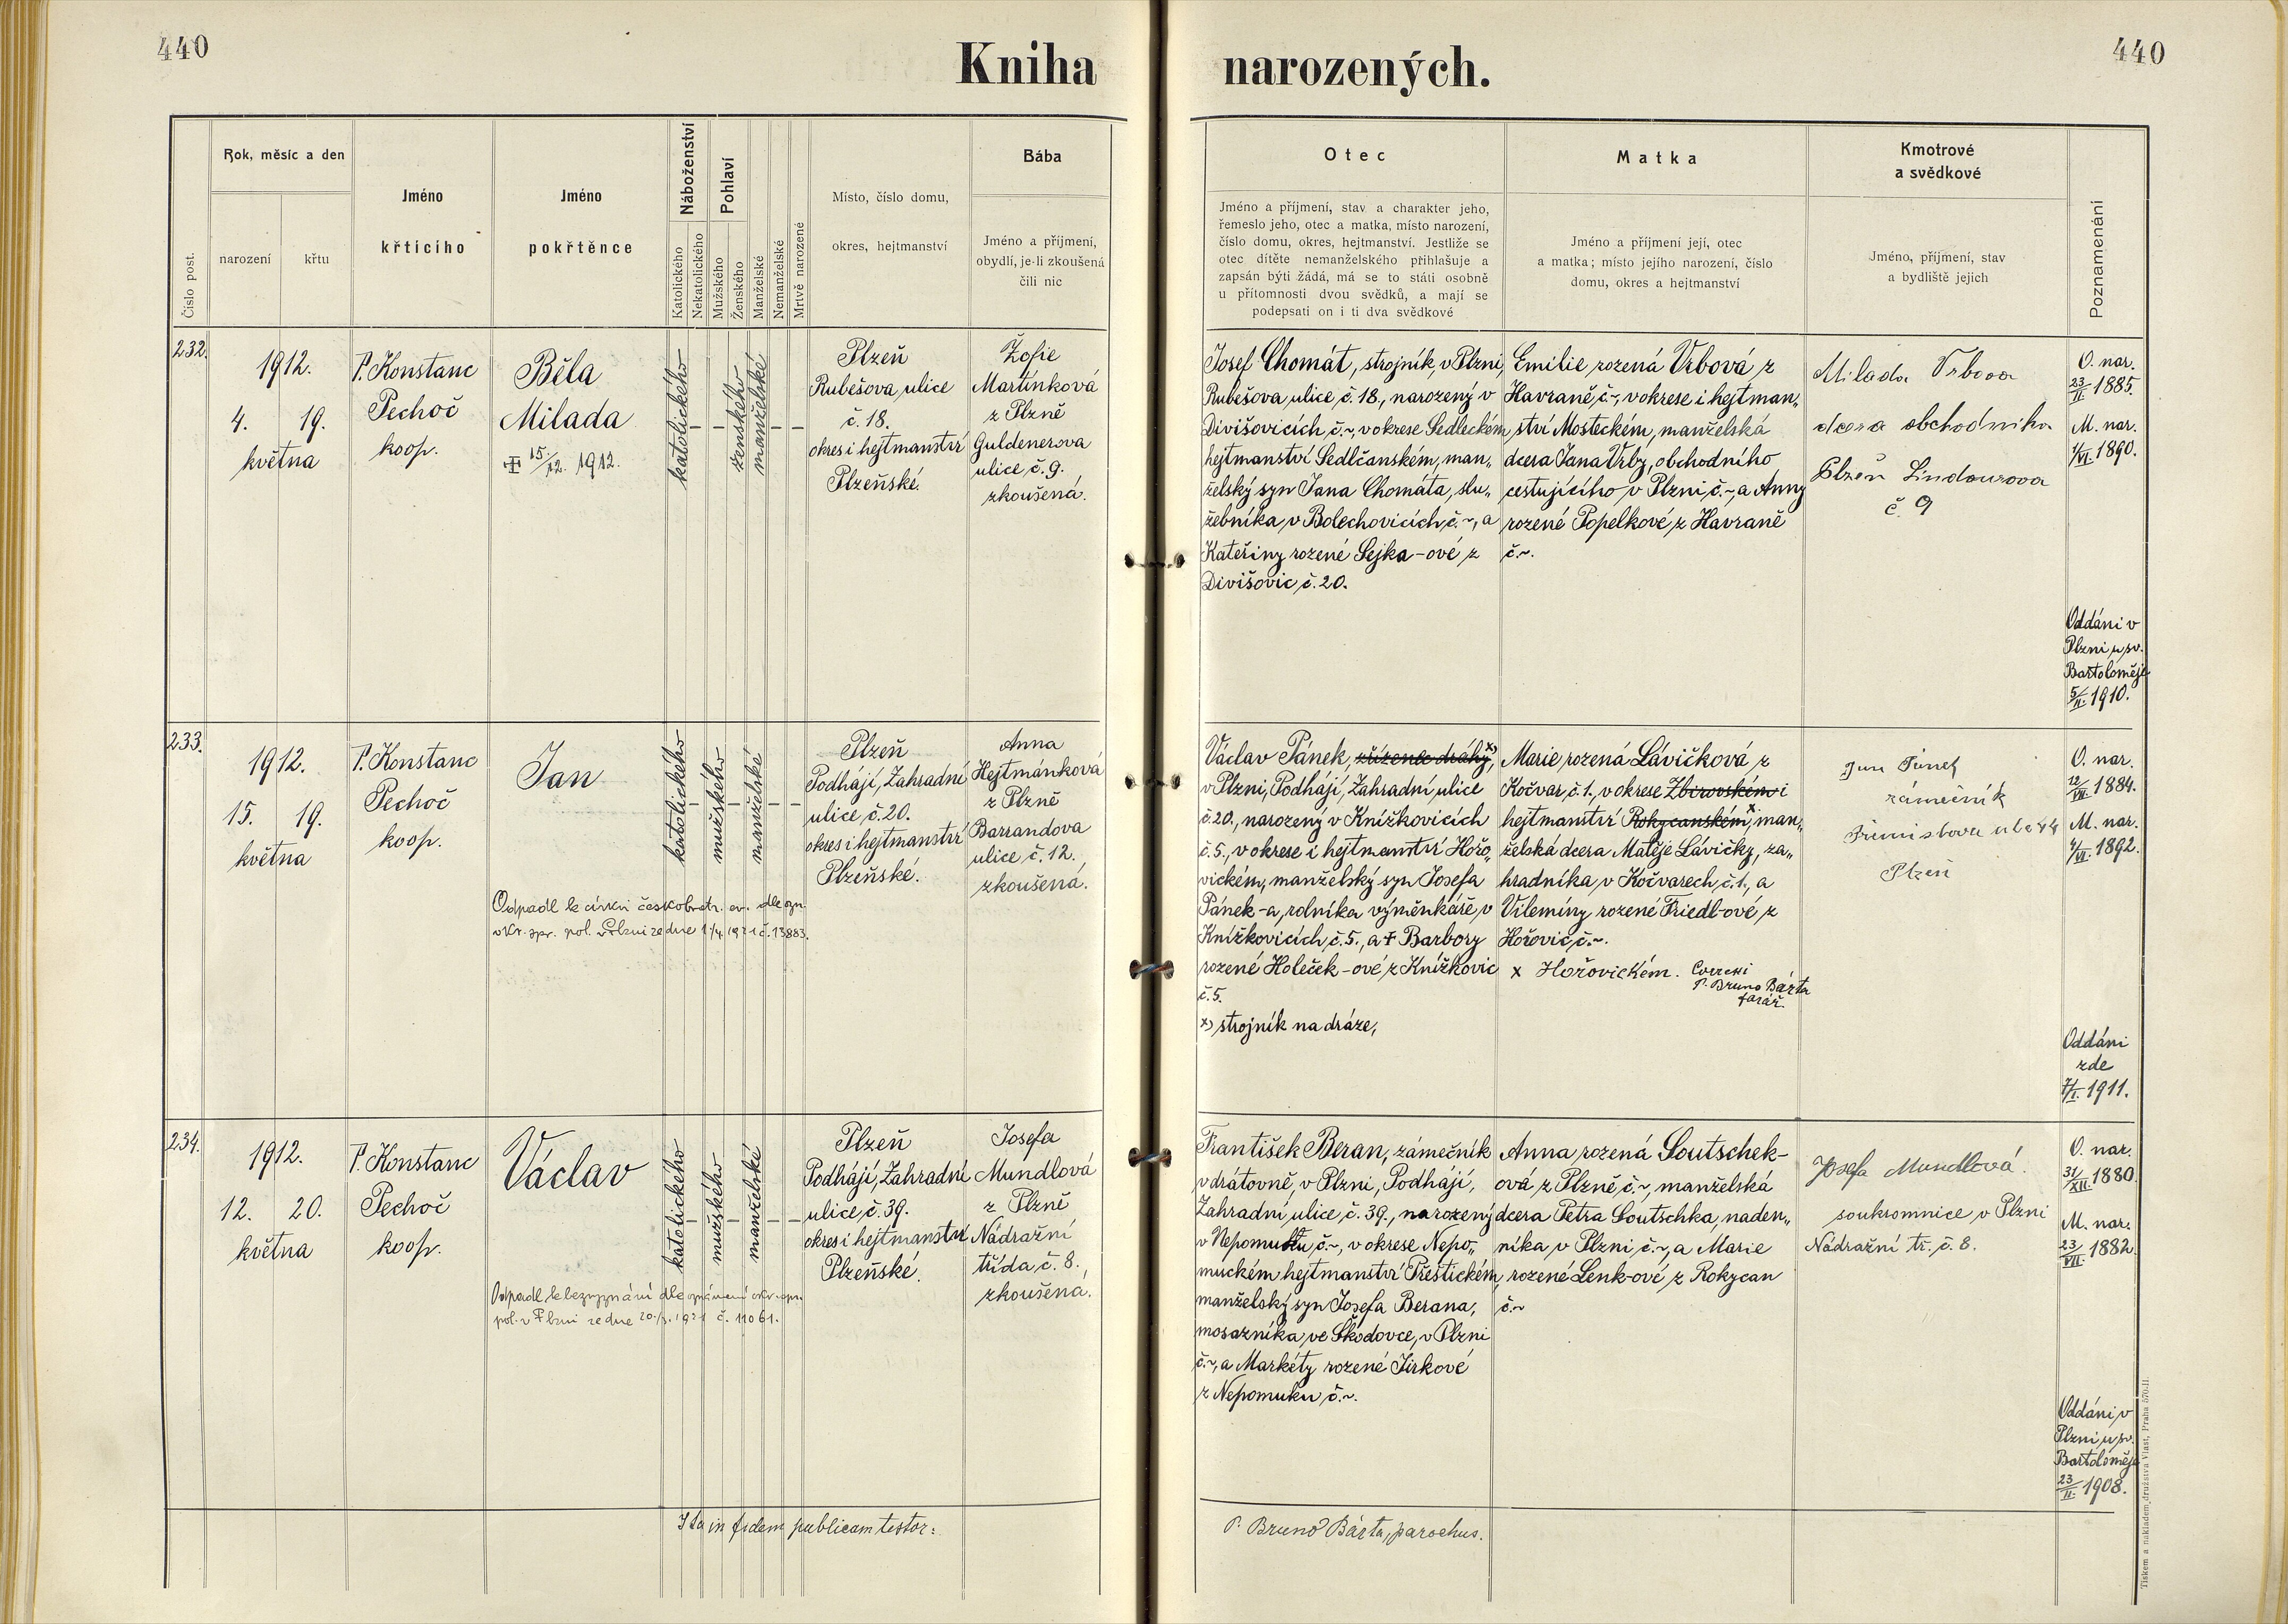 440
Kniha narozených.
440
Číslo post.
Rok, měsíc a den
narození
křtu
Jméno
křticího
Jméno
pokřtěnce
Náboženství
Katolického
Nekatolického
Pohlaví
Mužského
Ženského
Manželské
Nemanželské
Mrtvě narozené
Místo, číslo domu,
okres, hejtmanství
Bába
Jméno a příjmení,
obydlí, je-li zkoušená
čili nic
Otec
Jméno a příjmení, stav a charakter jeho,
řemeslo jeho, otec a matka, místo narození,
číslo domu, okres, hejtmanství. Jestliže se
otec dítěte nemanželského přihlašuje a
zapsán býti žádá, má se to státi osobně
u přítomnosti dvou svědků, a mají se
podepsati on i ti dva svědkové
Matka
Jméno a příjmení její, otec
a matka; místo jejího narození, číslo
domu, okres a hejtmanství
Kmotrové
a svědkové
Jméno, příjmení, stav
a bydliště jejich
Poznamenání
232.
1912.
4. 19.
května
P. Konstanc
Pechoč
koop.
Běla
Milada
15/12. 1912.
katolického
–
–
ženského
manželské
–
–
Plzeň
Rubešova ulice
č. 18.
okres i hejtmanství
Plzeňské.
Žofie
Martínková
z Plzně
Guldenerova
ulice č. 9.
zkoušená.
Josef Chomát, strojník v Plzni,
Rubešova ulice č. 18., narozený v
Divišovicích č. ~, v okrese Sedleckém
hejtmanství Sedlčanském, man„
želský syn Jana Chomáta, slu„
žebníka v Bolechovicích č. ~, a
Kateřiny rozené Sejka-ové z
Divišovic č. 20.
Emilie rozená Vrbová z
Havraně č. ~, v okrese i hejtman„
ství Mosteckém, manželská
dcera Jana Vrby, obchodního
cestujícího v Plzni č. ~, a Anny
rozené Popelkové z Havraně
č. ~.
Milada Vrbova
dcera obchodníka
Plzeň Lindaurova
č. 9
O. nar.
23/II. 1885.
M. nar.
1/VI. 1890.
Oddáni v
Plzni u sv.
Bartoloměje
5/II. 1910.
233.
1912.
15. 19.
května
P. Konstanc
Pechoč
koop.
Jan
katolického
–
mužského
–
manželské
–
–
Plzeň
Podhájí, Zahradní
ulice č. 20.
okres i hejtmanství
Plzeňské.
Anna
Hejtmánková
z Plzně
Barrandova
ulice č. 12.
zkoušená.
Odpadl k církvi českobratr. ev. dle ozn.
okr. spr. pol. v Plzni ze dne 1/4. 1921 č. 13883.
Václav Pánek, zřízenec dráhy, x)
v Plzni, Podhájí, Zahradní ulice
č. 20., narozený v Knížkovicích
č. 5., v okrese i hejtmanství Hořo„
vickém, manželský syn Josefa
Pánek-a, rolníka výměnkáře v
Knížkovicích č. 5., a † Barbory
rozené Holeček-ové z Knížkovic
č. 5.
x) strojník na dráze,
Marie rozená Lávičková z
Kočvar č. 1., v okrese Zbirovském i
hejtmanství Rokycanském, x. man„
želská dcera Matěje Lávičky, za„
hradníka v Kočvarech č. 1., a
Vilemíny rozené Friedl-ové z
Hořovic č. ~.
x Hořovickém. Correxi
P. Bruno Bárta
farář.
Jan Pánek
zámečník
Plzeň
O. nar.
12/VII. 1884.
M. nar.
4/VI. 1892.
Oddáni
zde
7/I. 1911.
234.
1912.
12. 20.
května
P. Konstanc
Pechoč
koop.
Václav
katolického
–
mužského
–
manželské
–
–
Plzeň
Podhájí, Zahradní
ulice č. 39.
okres i hejtmanství
Plzeňské.
Josefa
Mundlová
z Plzně
Nádražní
třída č. 8.,
zkoušená.
Odpadl k bezvyznání dle oznámení okr. spr.
pol. v Plzni ze dne 20./3. 1921 č. 11061.
František Beran, zámečník
v drátovně, v Plzni, Podhájí,
Zahradní ulice č. 39., narozený
v Nepomuku č. ~, v okrese Nepo„
muckém hejtmanství Přeštickém,
manželský syn Josefa Berana,
mosazníka ve Škodovce, v Plzni
č. ~, a Markéty rozené Jirkové
z Nepomuku č. ~.
Anna rozená Loutschek-
ová z Plzně č. ~, manželská
dcera Petra Loutschka, naden„
níka v Plzni č. ~, a Marie
rozené Lenk-ové z Rokycan
č. ~
Josefa Mundlová.
soukromnice v Plzni
Nádražní tř. č. 8.
O. nar.
31/XII. 1880.
M. nar.
23/VII. 1882.
Oddáni v
Plzni u sv.
Bartoloměje
23/II. 1908.
Ita in fidem publicam testor:
P. Bruno Bárta, parochus.
Tiskem a nákladem družstva Vlast, Praha 570-II.